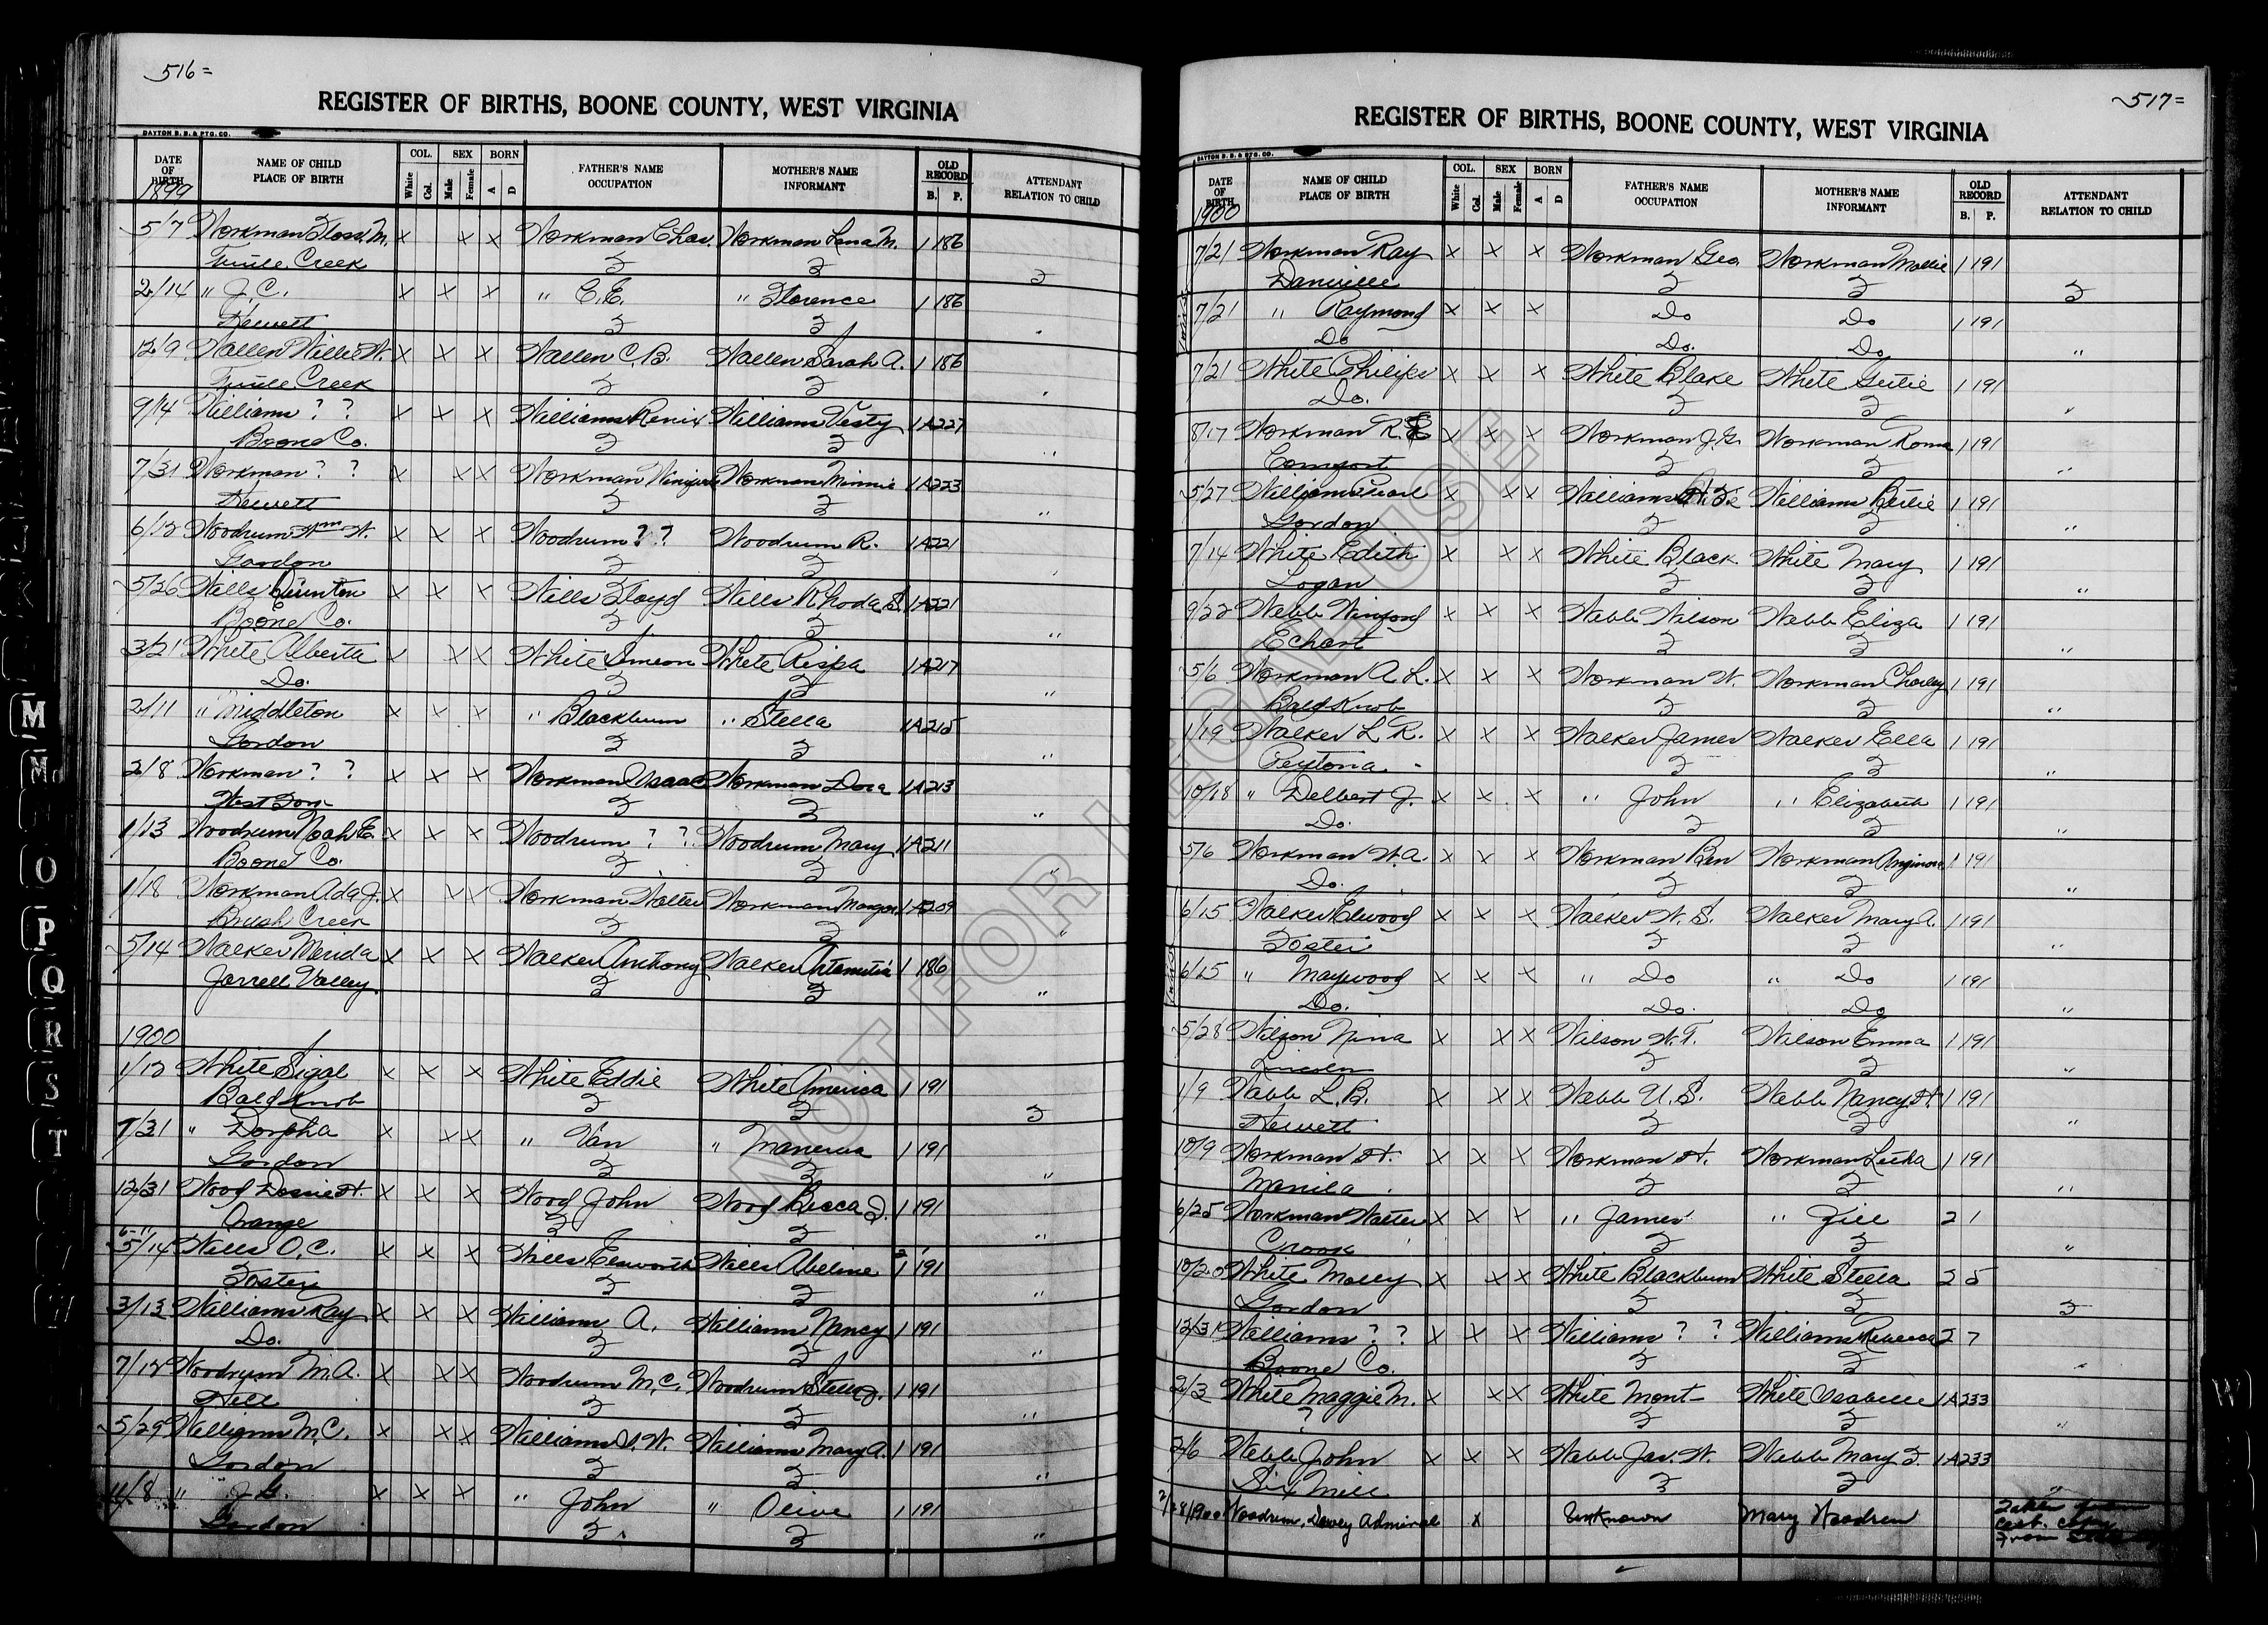 516=
REGISTER OF BIRTHS, BOONE COUNTY, WEST VIRGINIA
DAYTON B. B. & PTG. CO.
DATE OF BIRTH NAME OF CHILD PLACE OF BIRTH COL. White Col. SEX Male Female BORN A D FATHER'S NAME OCCUPATION MOTHER'S NAME INFORMANT OLD RECORD B. P. ATTENDANT RELATION TO CHILD
1899
5/7 Workman M. x x x Workman Chas. Workman Lena M. 1 186
Turtle Creek ? ? ?
2/14 " J. C. x x x " E. E. " Florence 1 186
Hewett ? ? "
12/9 Wallen Willie W. x x x Wallen C. B. Wallen Sarah A. 1 186
Turtle Creek ? ? "
9/14 Williams ? ? x x x Williams Williams Vesty 1A227
Boone Co. ? ? "
7/31 Workman ? ? x x x Workman Workman Minnie 1A223
Hewett ? ? "
6/12 Woodrum Wm W. x x x Woodrum ? ? Woodrum R. 1A221
Gordon ? ? "
5/26 Wills Quinton x x x Wills Floyd Wills Rhoda S. 1A221
Boone Co. ? ? "
3/21 White Alberta x x x White Simeon White Rispa 1A217
Do. ? ? "
2/11 " Middleton x x x " Blackburn " Stella 1A215
Gordon ? ? "
2/8 Workman ? ? x x x Workman Isaac Workman Dora 1A213
West Fork ? ? "
1/13 Woodrum Noah E. x x x Woodrum ? ? Woodrum Mary 1A211
Boone Co. ? ? "
1/18 Workman Ada J. x x x Workman Walter Workman 1A209
Brush Creek ? ? "
5/14 Walker Merida x x x Walker Anthony Walker 1 186
Jarrell Valley ? ? "
1900
1/12 White Sigal x x x White Eddie White America 1 191
Bald Knob ? ? ?
7/31 " Dorpha x x x " Van " Manerva 1 191
Gordon ? ? "
12/31 Wood x x x Wood John Wood Becca J. 1 191
Orange ? ? "
5/14 Wills O. C. x x x Wills Elsworth Wills Abeline 1 191
Foster ? ? "
3/13 Williams Ray x x x Williams A. Williams Nancy 1 191
Do. ? ? "
7/12 Woodrum M. A. x x x Woodrum M. C. Woodrum Stella J. 1 191
Hill ? ? "
5/29 Williams M. C. x x x Williams W. Williams Mary A. 1 191
Gordon ? ? "
11/8 " J. G. x x x " John " Olive 1 191
Gordon ? ? "
517=
REGISTER OF BIRTHS, BOONE COUNTY, WEST VIRGINIA
DAYTON B. B. & PTG. CO.
DATE OF BIRTH NAME OF CHILD PLACE OF BIRTH COL. White Col. SEX Male Female BORN A D FATHER'S NAME OCCUPATION MOTHER'S NAME INFORMANT OLD RECORD B. P. ATTENDANT RELATION TO CHILD
1900
7/21 Workman Ray x x x Workman Geo Workman Mollie 1 191
Danville ? ? ?
7/21 " Raymond x x x Do Do 1 191
Do Do. Do "
7/21 White Philip x x x White Blake White 1 191
Do. ? ? "
8/17 Workman R. E. x x x Workman J. G. Workman Roma 1 191
Comfort ? ? "
5/27 Williams Pearl x x x Williams Williams 1 191
Gordon ? ? "
7/14 White Edith x x x White Black White Mary 1 191
Logan ? ? "
9/22 Webb Winford x x x Webb Wilson Webb Eliza 1 191
Echart ? ? "
5/6 Workman A. L. x x x Workman W. Workman 1 191
Bald Knob ? ? "
1/19 Walker L R. x x x Walker James Walker Ella 1 191
Peytona ? ? "
10/18 " Delbert J. x x x " John " Elizabeth 1 191
Do. ? ? "
5/6 Workman W. A. x x x Workman Ben Workman 1 191
Do. ? ? "
6/15 Walker Elwood x x x Walker W. S. Walker Mary A. 1 191
Foster ? ? "
6/15 " Maywood x x x " Do " Do 1 191
Do. Do. Do "
5/28 Wilson Nina x x x Wilson W. T. Wilson Emma 1 191
Lincoln ? ? "
1/9 Webb L. B. x x x Webb U. S. Webb Nancy H. 1 191
Hewett ? ? "
10/9 Workman H. x x x Workman H. Workman 1 191
Manila ? ? "
6/25 Workman Walter x x x " James " 2 1
Crook ? ? "
10/20 White Molley x x x White Blackburn White Stella 2 5
Gordon ? ? ?
12/31 Williams ? ? x x x Williams ? ? Williams Rebecca 2 7
Boone Co. ? ? "
2/3 White Maggie M. x x x White Mont White Isabelle 1A233
? ? ? "
2/6 Webb John x x x Webb Jas. W. Webb Mary F. 1A233
Six Mile ? ? "
2/28/1900 Woodrum, Dewey Admiral x Unknown Mary Woodrum Taken from
cert. copy
from
NOT FOR LEGAL USE
M
Mc
O
P
Q
R
S
T
W